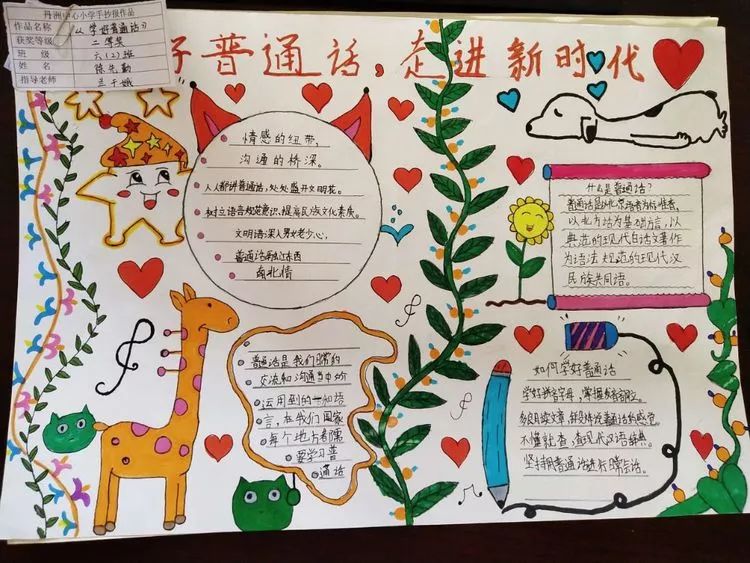 丹洲中心小学手抄报作品
作品名称 《学好普通话》
获奖等级 二等奖
班级 六(2)班
姓名 陈先勤
指导老师 兰千娥
好普通话,走进新时代
情感的纽带,
沟通的桥深。
人人都讲普通话,处处盛开文明花。
树立语言规范意识,提高民族文化素质。
文明语深入男女老少心,
普通话东西
南北情
什么是普通话?
普通话是以北京语音为标准音,
以北方话为基础方言,以
典范的现代白话文著作
为语法规范的现代汉
民族共同语。
普通话是我们日常的
交流和沟通当中价
运用到的一种语
言,在我们国家
每个地方看儒
要学习普
通话
如何学好普通话
学好拼音字母,掌握发音部位。
多说多读文章,寻找普通话的感觉。
不懂就查,查现代汉语辞典。
坚持用普通话进行日常会话。